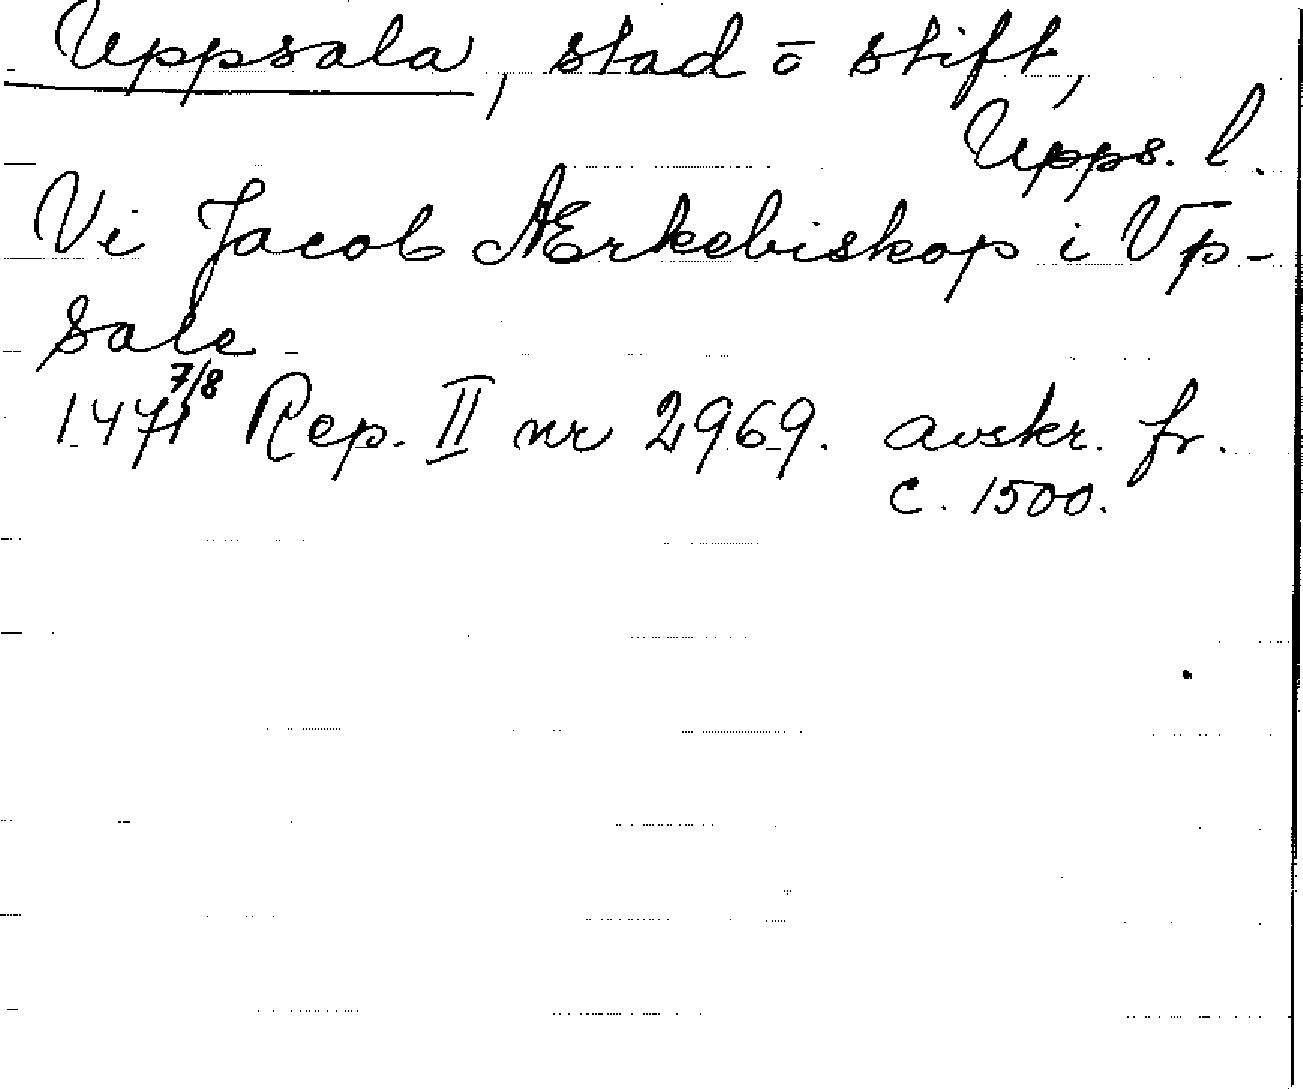 Uppsala, stad ō stift,
Upps. l.
Vi Jacob Ærkebiskop i Vp-
sale
1471 7/8 Rep. II nr 2969. avskr. fr.
c. 1500.